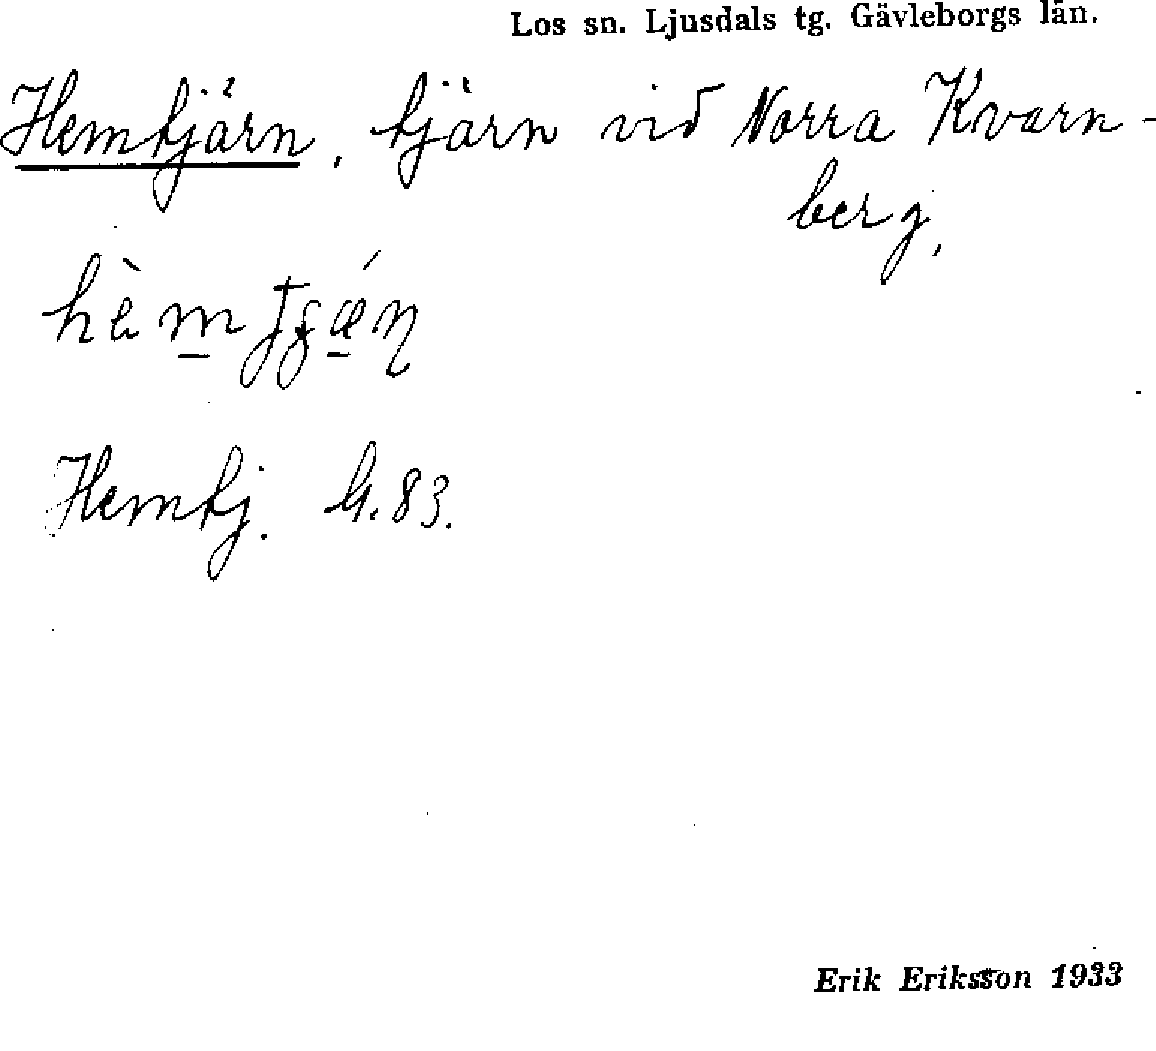 Los sn. Ljusdals tg. Gävleborgs län.
Hemtjärn, tjärn vid Norra Kvarn-
berg,
Hemtj. 83.
Erik Eriksson 1933